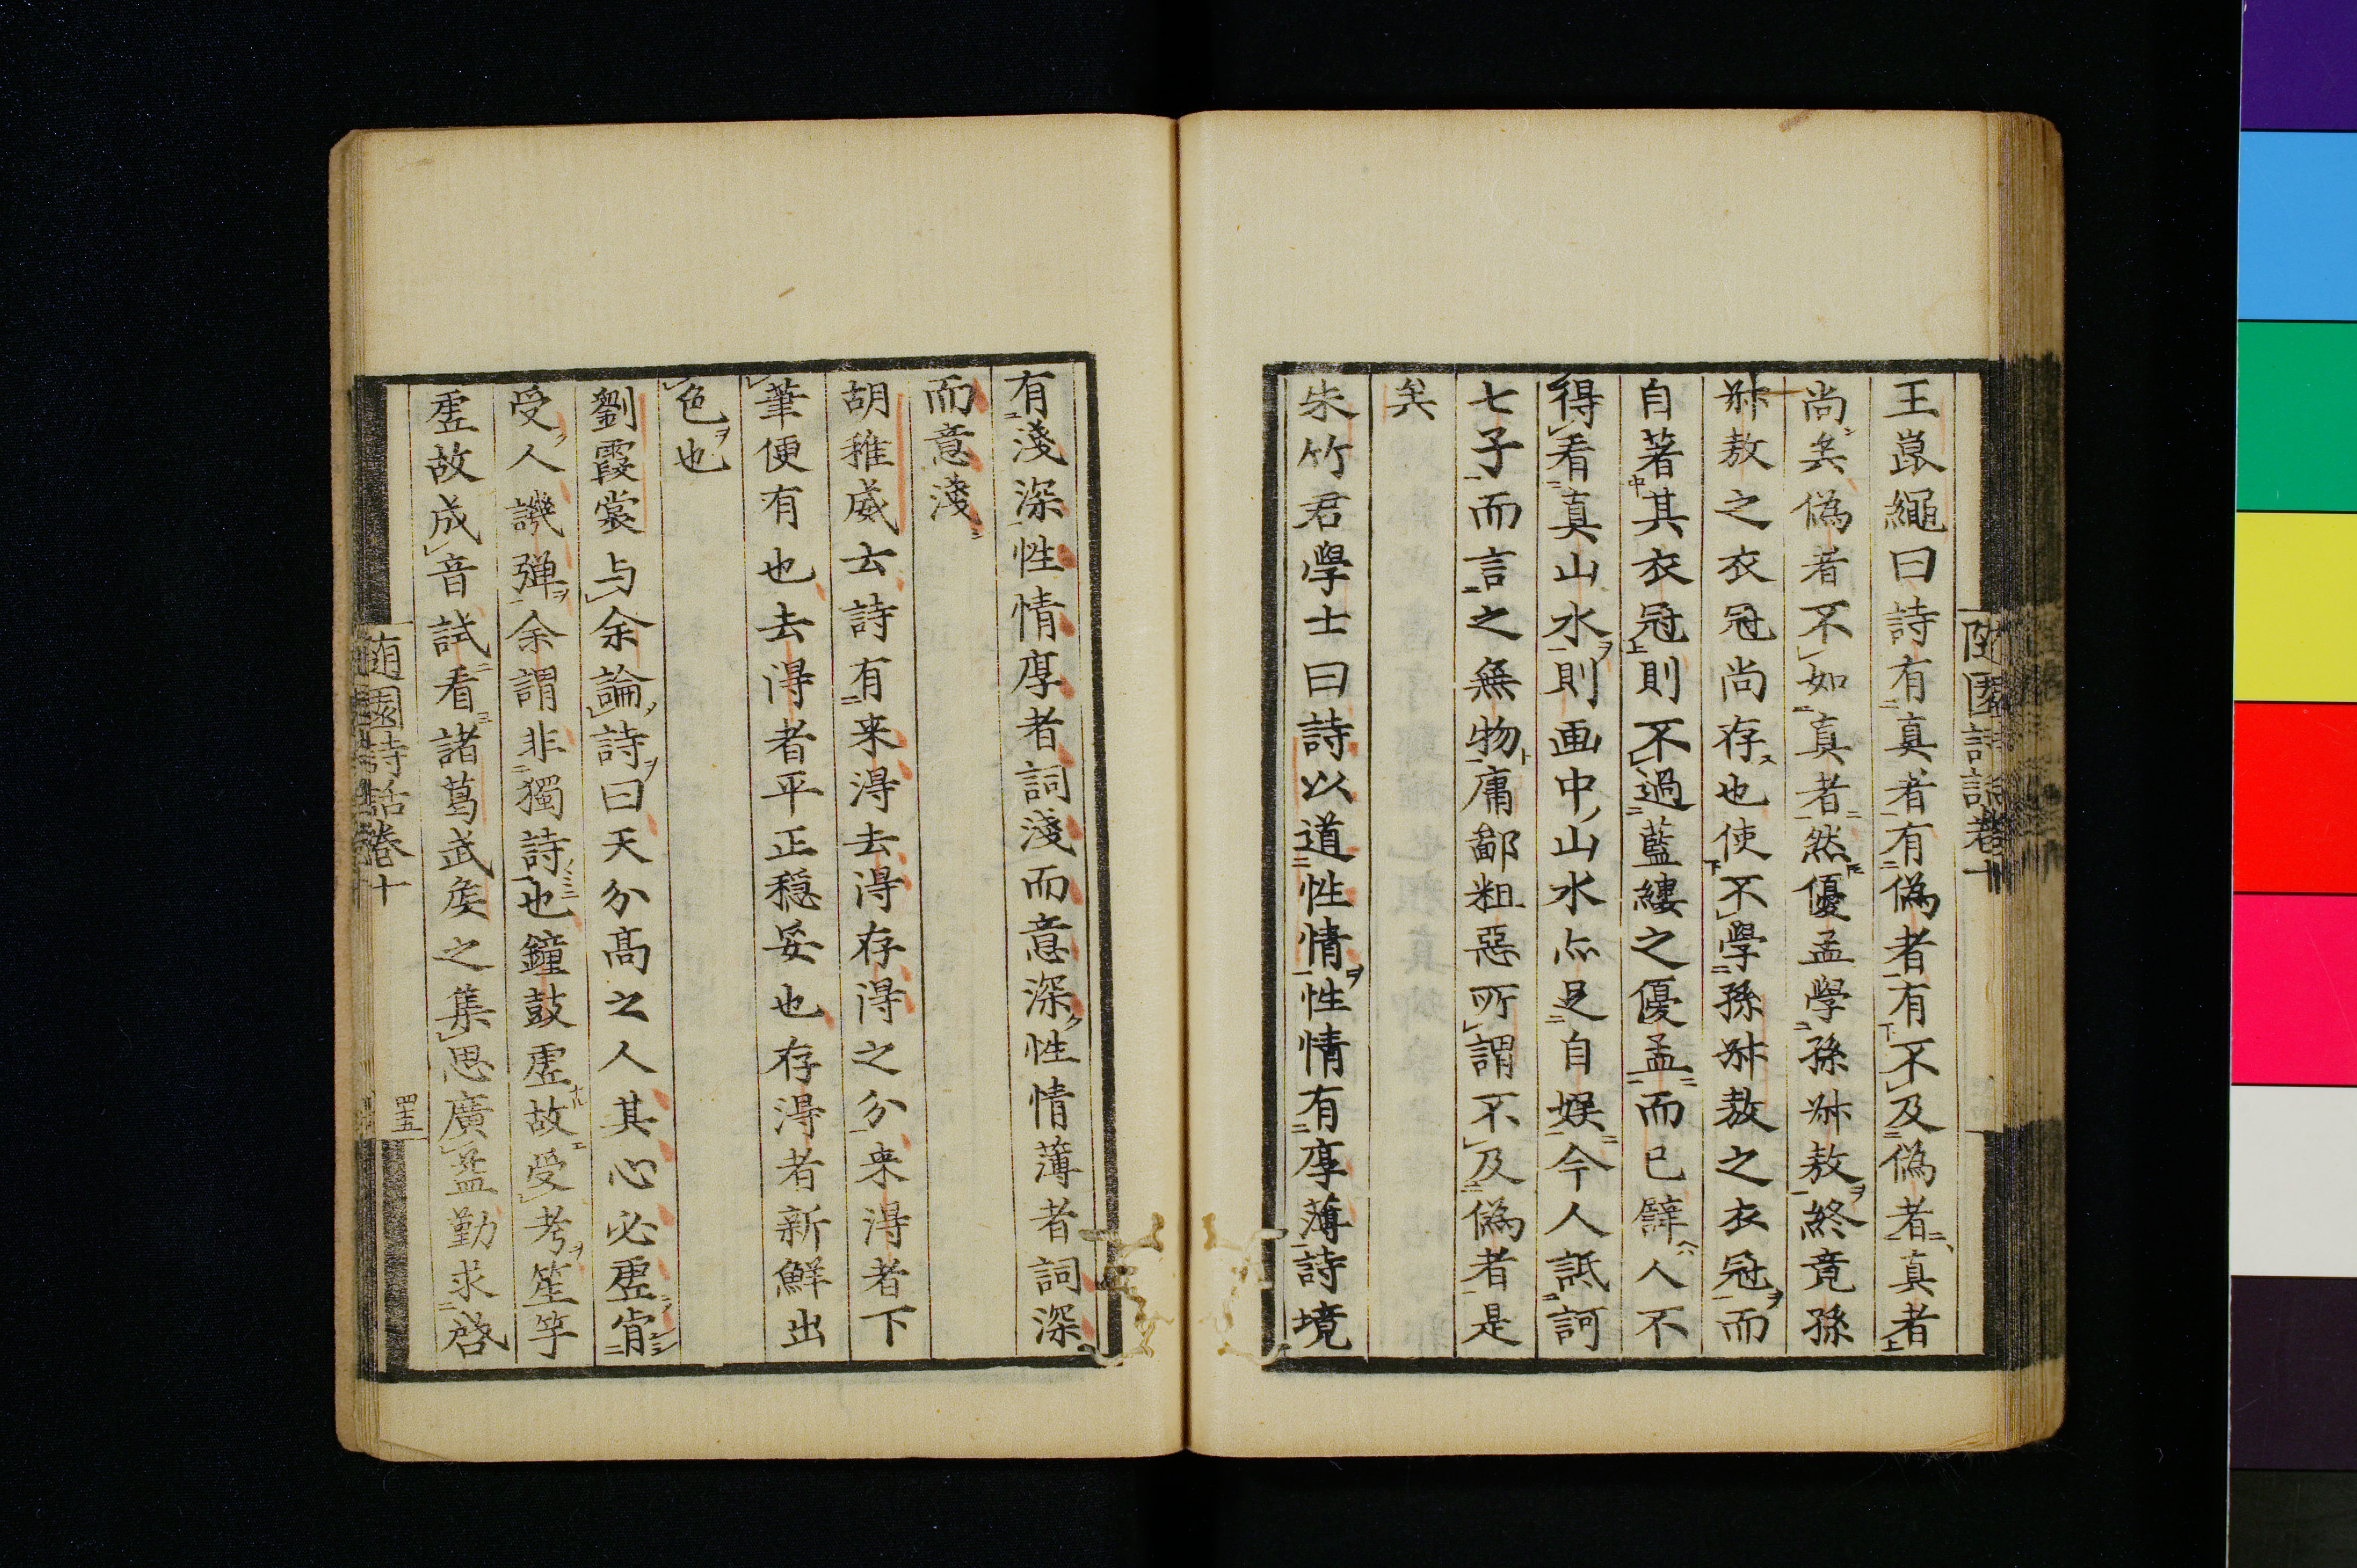 隨園詩話卷十
王崑繩曰詩有真者有偽者有不及偽者真者
尚矣偽者不如真者然優孟學孫叔敖終竟孫
叔敖之衣冠尚存也使不學孫叔敖之衣冠而
自著其衣冠則不過藍縷之優孟而已譬人不
得看真山水則画中山水亦足自娱今人詆訶
七子而言之無物庸鄙粗惡所謂不及偽者是
矣
朱竹君學士曰詩以道性情性情有厚薄詩境
有淺深性情厚者詞淺而意深性情薄者詞深
而意淺
胡稚威云詩有来得去得存得之分来得者下
筆便有也去得者平正穏妥也存得者新鮮出
色也
劉霞裳与余論詩曰天分高之人其心必虛肯
受人譏弾余謂非獨詩也鐘鼓虛故受考笙竽
虛故成音試看諸葛武矦之集思廣益勤求啓
隨園詩話卷十
四五